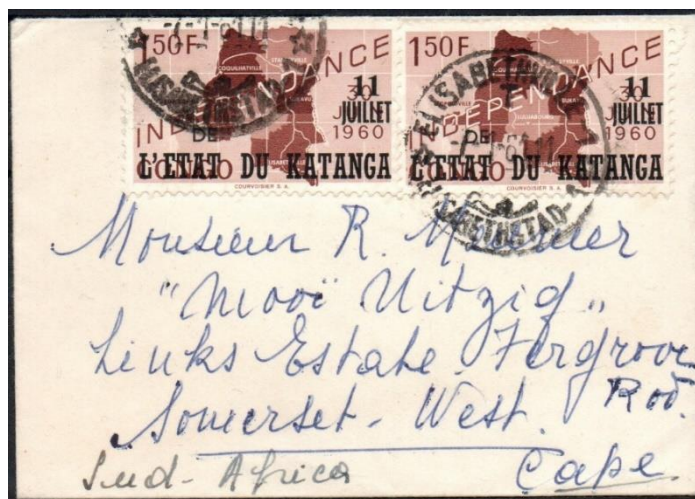 1.50F INDEPENDANCE 11 JUILLET 1960
DE L'ETAT DU KATANGA
COURVOISIER S. A.
1.50F INDEPENDANCE 11 JUILLET 1960
DE L'ETAT DU KATANGA
COURVOISIER S. A.
Monsieur R.
"Mooi Uitzig"
Links Estate
Rod.
Somerset-West.
Sud-Africa Cape